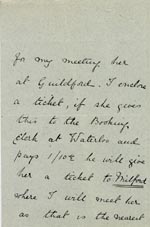 for my meeting her
at Guildford. I enclose
a ticket, if she gives
this to the Booking
Clerk at Waterloo and
pays 1/10½ he will give
her a ticket to Milford
where I will meet her
as that is the nearest